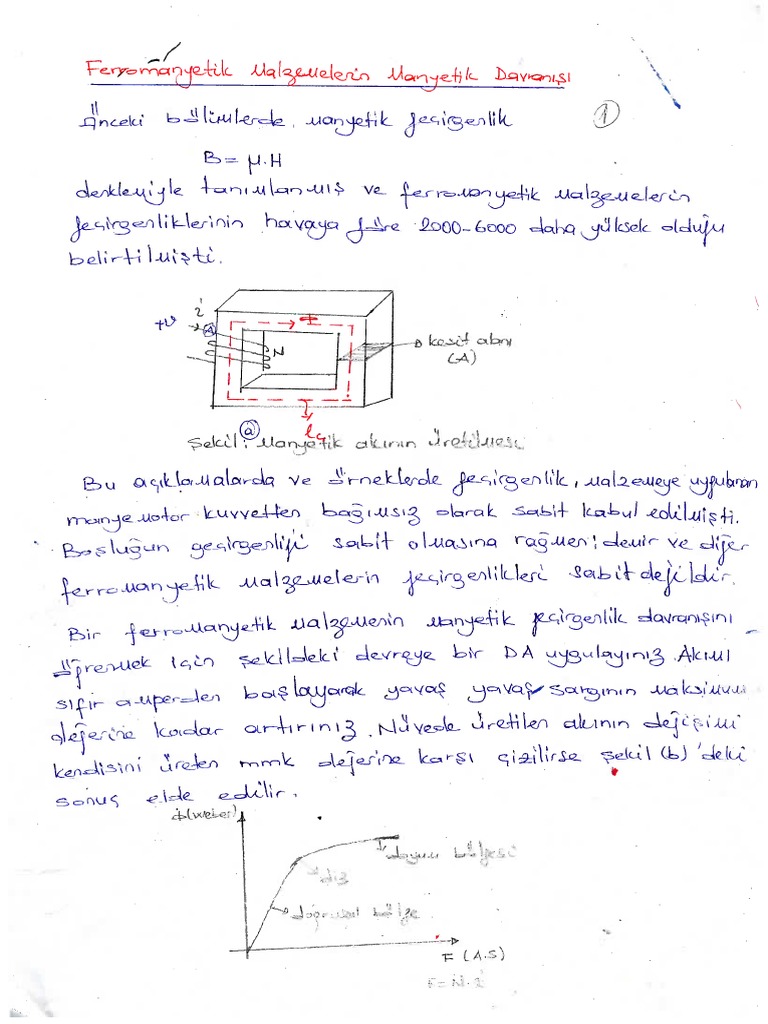 Ferromanyetik Malzemelerin Manyetik Davranışı
1
Önceki bölümlerde, manyetik geçirgenlik
B = μ.H
denklemiyle tanımlanmış ve ferromanyetik malzemelerin
geçirgenliklerinin havaya göre 2000-6000 daha yüksek olduğu
belirtilmişti.
i
+V
A
N
Φ
kesit alanı
(A)
lç
a
Şekil: Manyetik akının üretilmesi
Bu açıklamalarda ve örneklerde geçirgenlik, malzemeye uygulanan
manyemotor kuvvetten bağımsız olarak sabit kabul edilmişti.
Boşluğun geçirgenliği sabit olmasına rağmen; demir ve diğer
ferromanyetik malzemelerin geçirgenlikleri sabit değildir.
Bir ferromanyetik malzemenin manyetik geçirgenlik davranışını
öğrenmek için şekildeki devreye bir DA uygulayınız. Akımı
sıfır amperden başlayarak yavaş yavaş sargının maksimum
değerine kadar artırınız. Nüvede üretilen akının değişimi
kendisini üreten mmk değerine karşı çizilirse şekil (b)'deki
sonuç elde edilir.
Φ(weber)
doyum bölgesi
diz
doğrusal bölge
F (A.S)
F = N.i